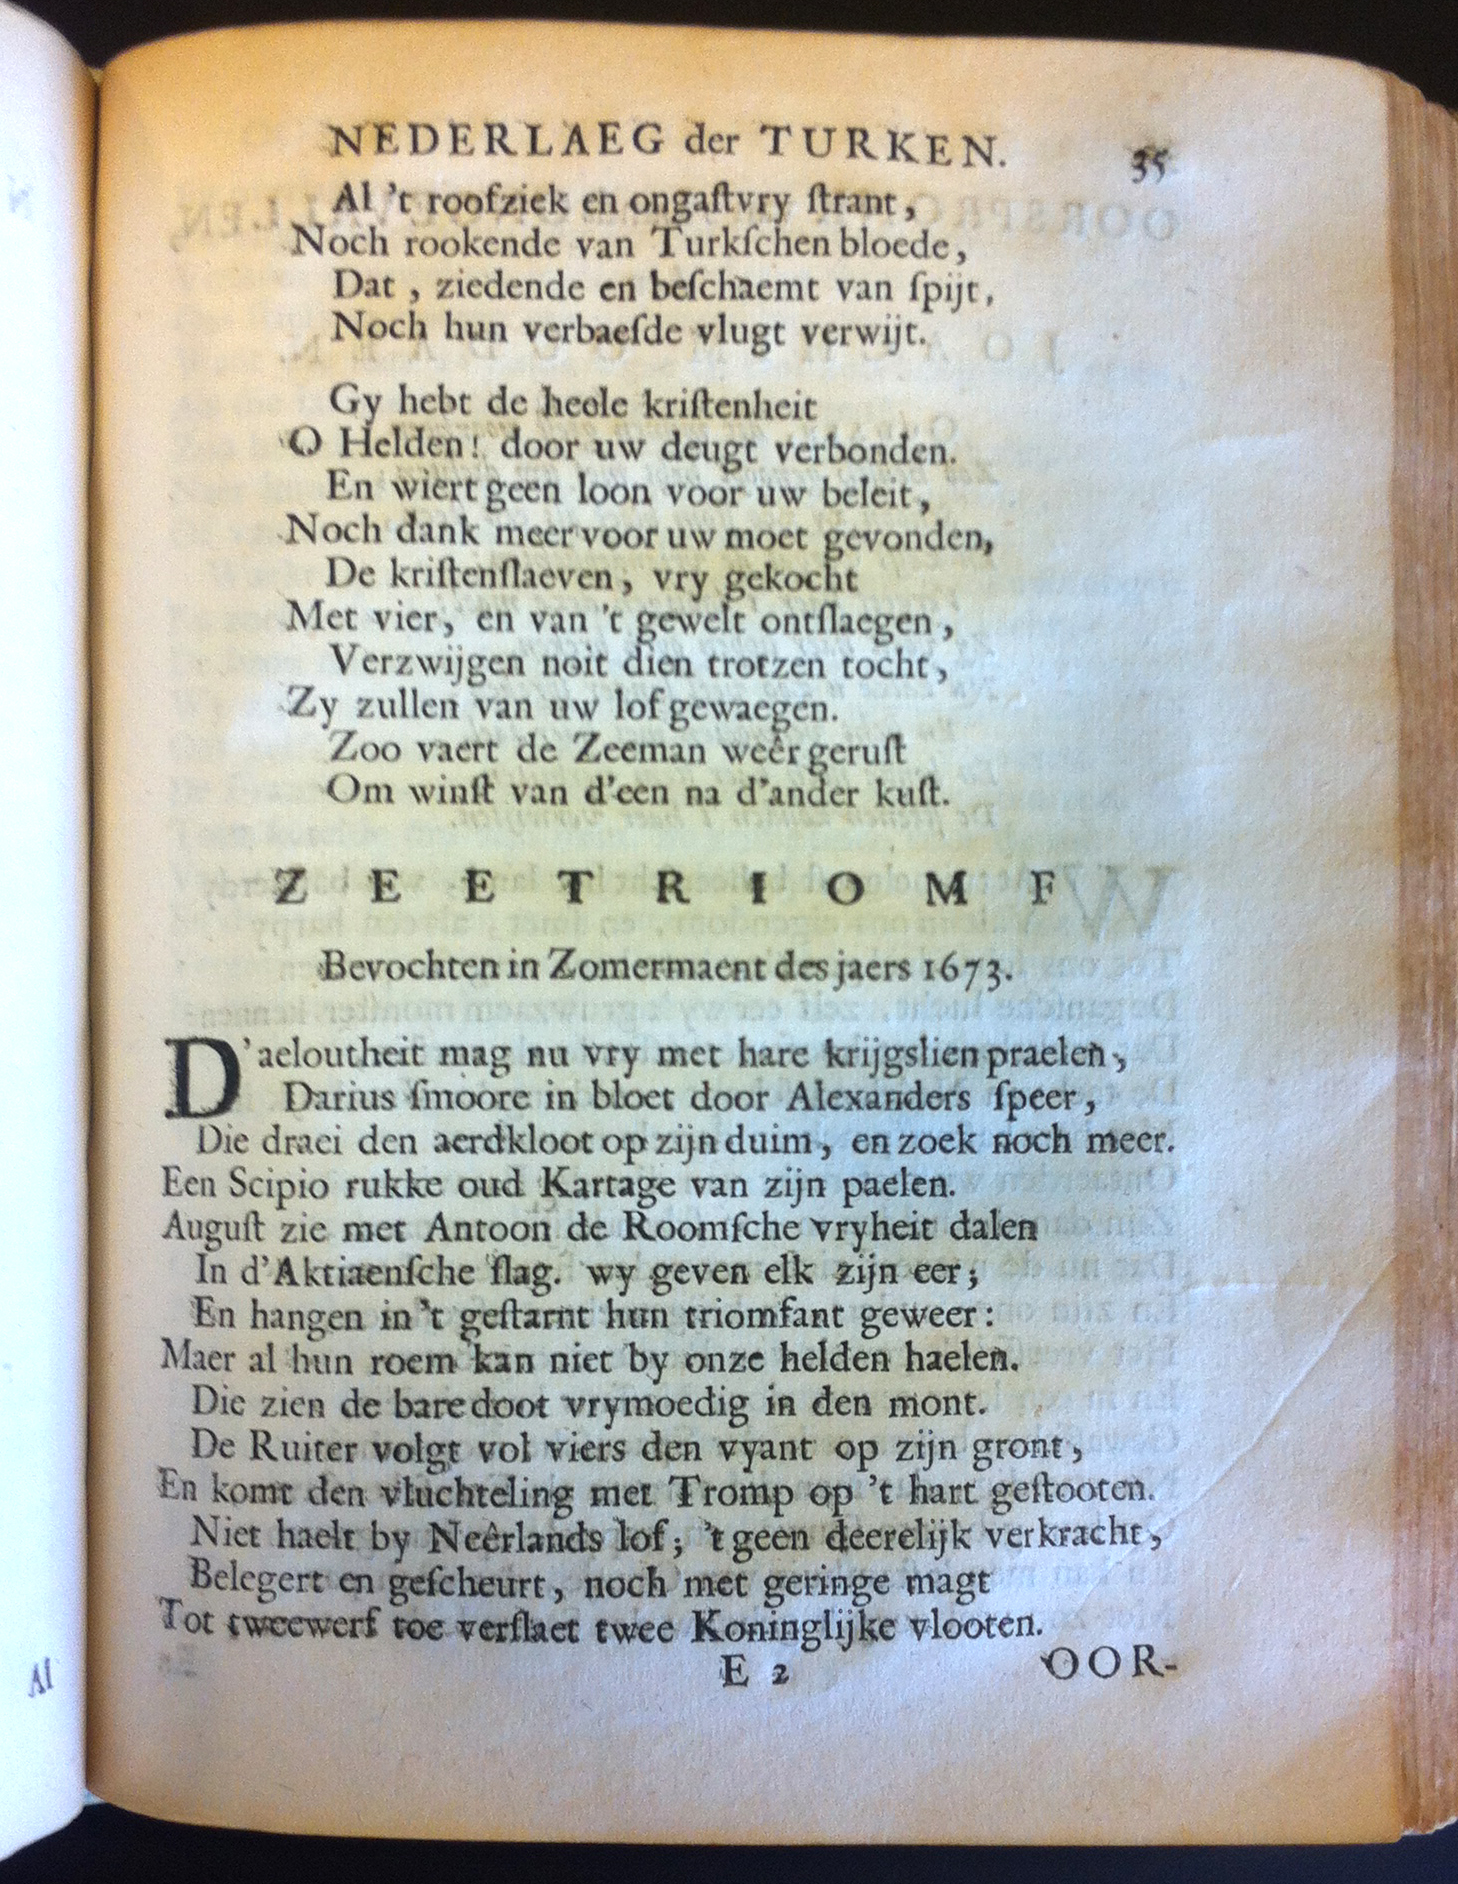 NEDERLAEG der TURKEN. 35
Al 't roofziek en ongaſtvry ſtrant,
Noch rookende van Turkſchen bloede,
Dat, ziedende en beſchaemt van ſpijt,
Noch hun verbaeſde vlugt verwijt.
Gy hebt de heele kriſtenheit
O Helden! door uw deugt verbonden.
En wiert geen loon voor uw beleit,
Noch dank meer voor uw moet gevonden,
De kriſtenſlaeven, vry gekocht
Met vier, en van 't gewelt ontſlaegen,
Verzwijgen noit dien trotzen tocht,
Zy zullen van uw lof gewaegen.
Zoo vaert de Zeeman weêr geruſt
Om winſt van d'een na d'ander kuſt.
ZEETRIOMF
Bevochten in Zomermaent des jaers 1673.
D'aeloutheit mag nu vry met hare krijgslien praelen,
Darius ſmoore in bloet door Alexanders ſpeer,
Die draei den aerdkloot op zijn duim, en zoek noch meer.
Een Scipio rukke oud Kartage van zijn paelen.
Auguſt zie met Antoon de Roomſche vryheit dalen
In d'Aktiaenſche ſlag. wy geven elk zijn eer;
En hangen in 't geſtarnt hun triomfant geweer:
Maer al hun roem kan niet by onze helden haelen.
Die zien de bare doot vrymoedig in den mont.
De Ruiter volgt vol viers den vyant op zijn gront,
En komt den vluchteling met Tromp op 't hart geſtooten.
Niet haelt by Neêrlands lof; 't geen deerelijk verkracht,
Belegert en geſcheurt, noch met geringe magt
Tot tweewerf toe verſlaet twee Koninglijke vlooten.
E 2 OOR-
Al